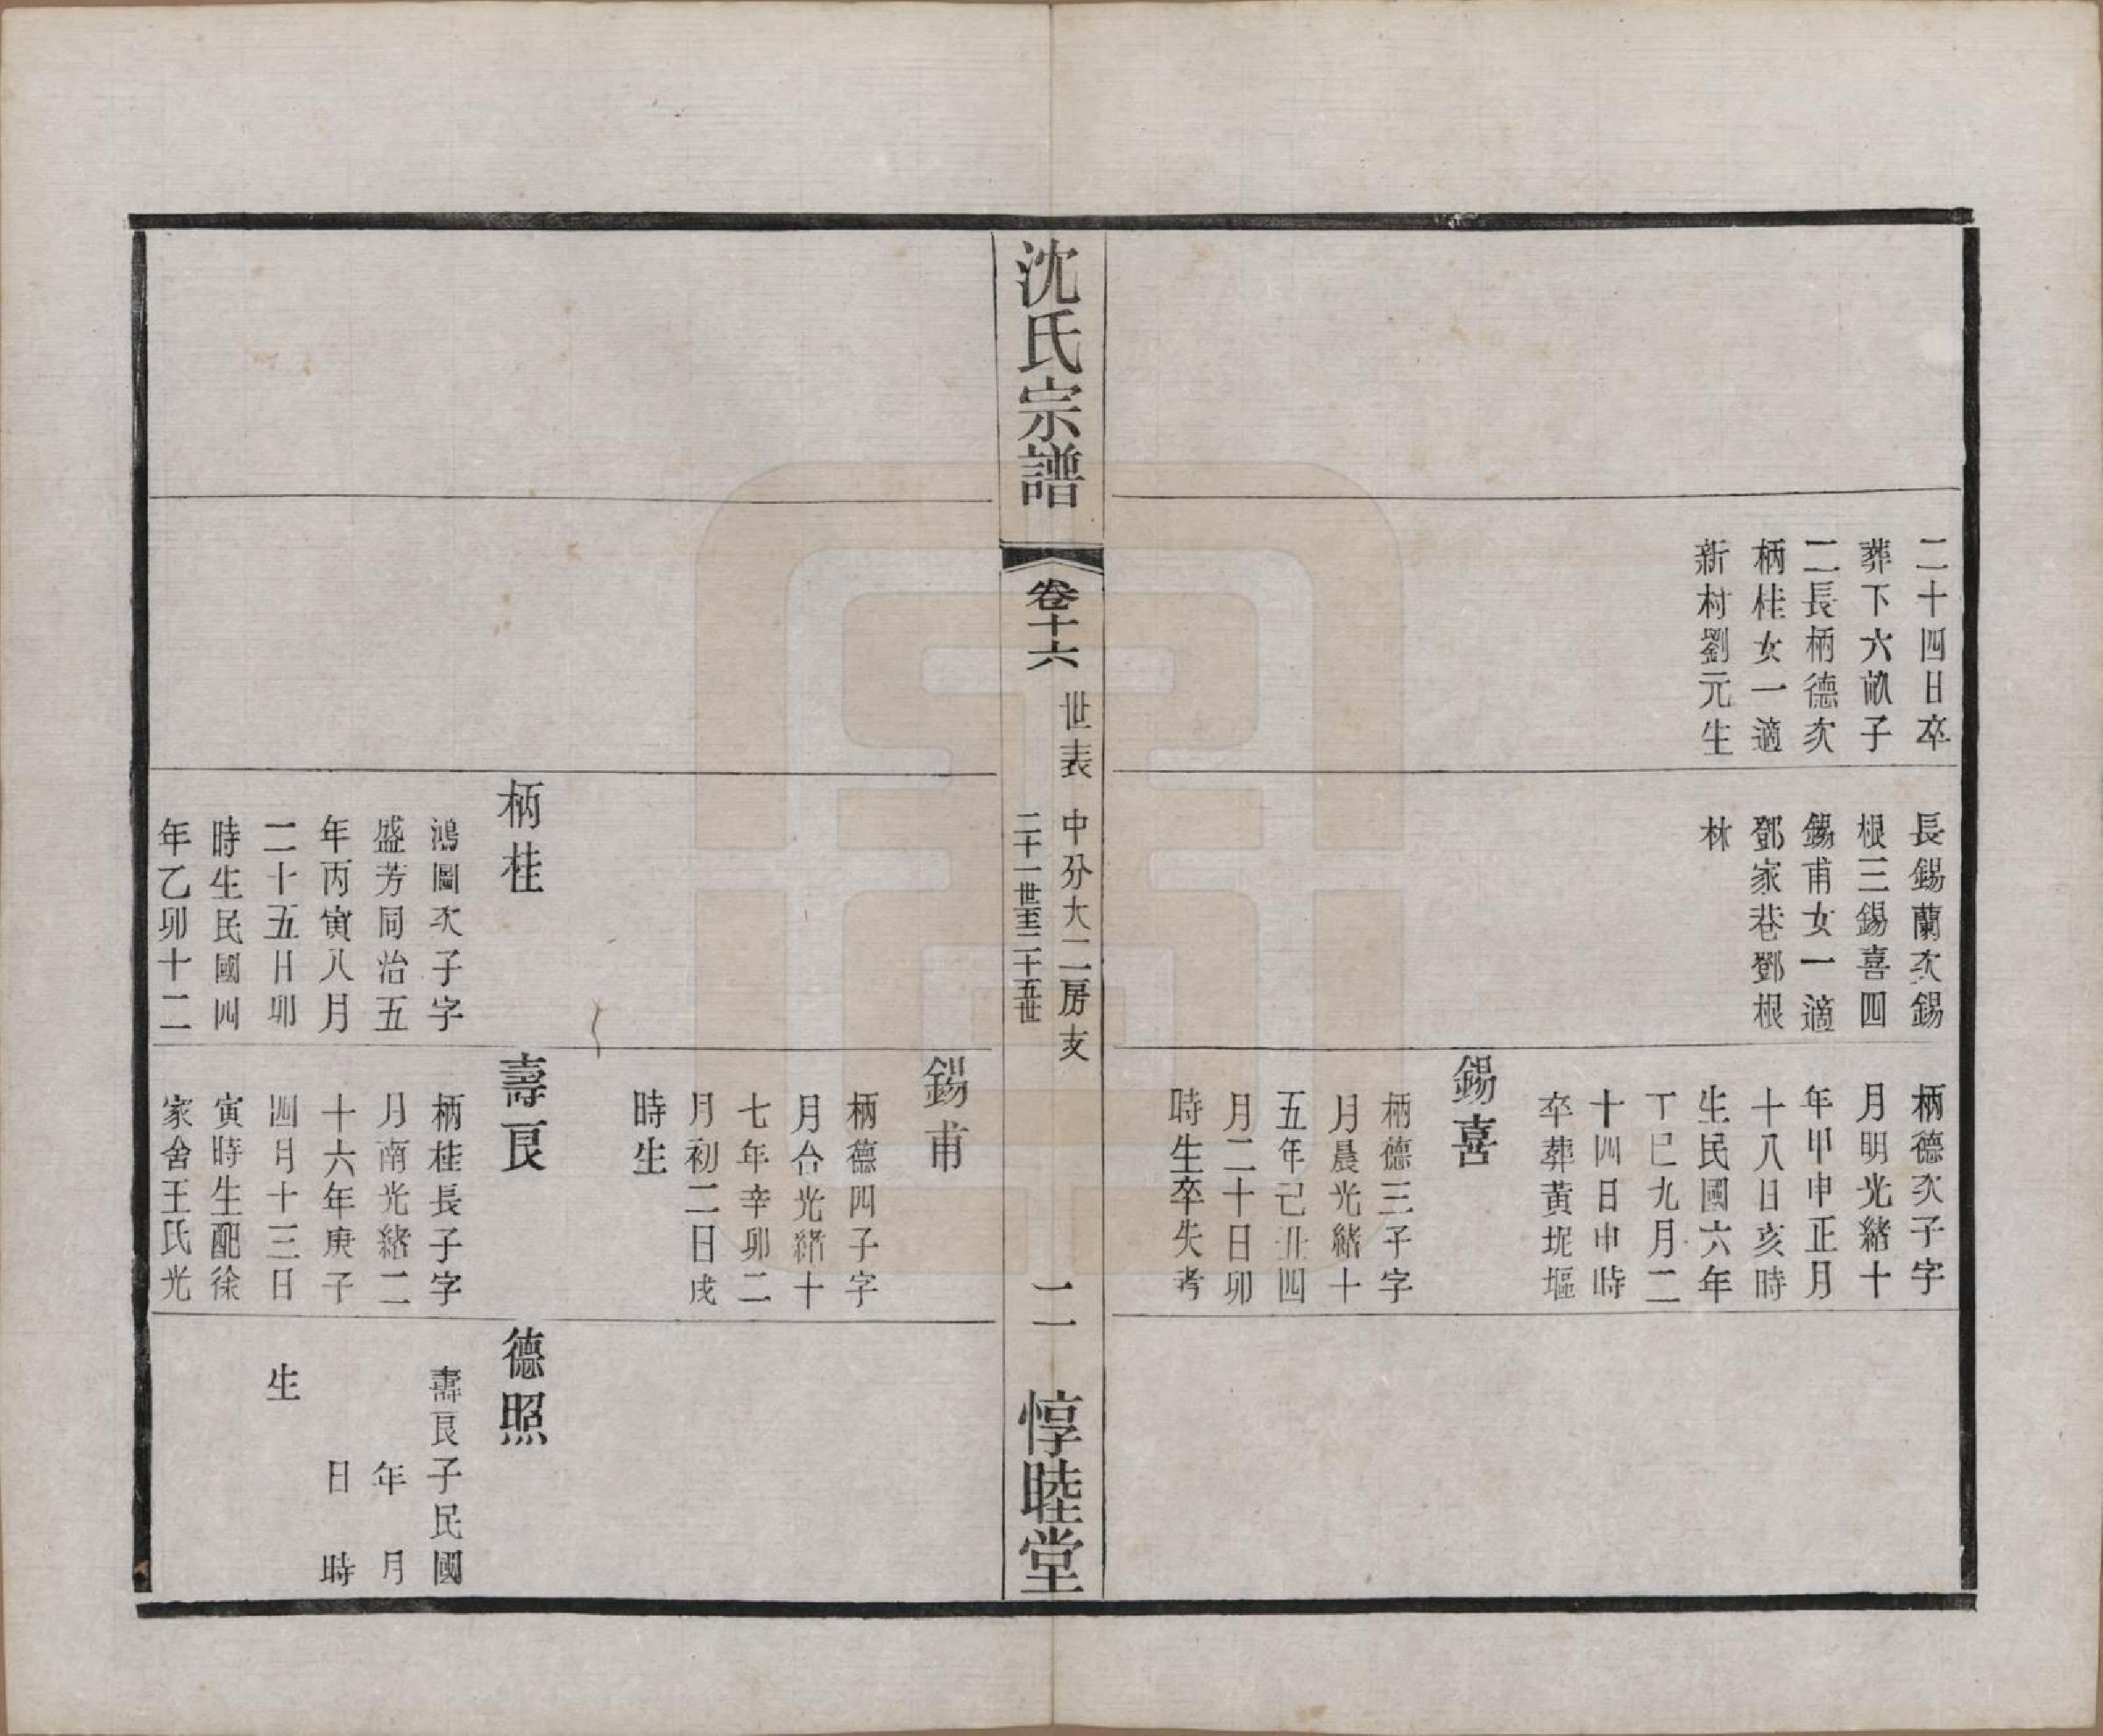 二十四日卒
葬下六畝子
二長柄德次
柄桂女一適
新村劉元生
長錫蘭次錫
根三錫喜四
錫甫女一適
鄧家巷鄧根
林
柄德次子字
月明光緒十
年甲申正月
十八日亥時
生民國六年
丁巳九月二
十四日申時
卒葬黃坭塸
錫喜
柄德三子字
月晨光緒十
五年己丑四
月二十日卯
時生卒失考
沈氏宗譜
卷十六
世表
中分大二房支
二十一世至二十五世
二
惇睦堂
錫甫
柄德四子字
月台光緒十
七年辛卯二
月初二日戌
時生
柄桂
鴻圖次子字
盛芳同治五
年丙寅八月
二十五日卯
時生民國四
年乙卯十二
壽艮
柄桂長子字
月南光緒二
十六年庚子
四月十三日
寅時生配徐
家舍王氏光
德照
壽艮子民國
年 月
日 時
生